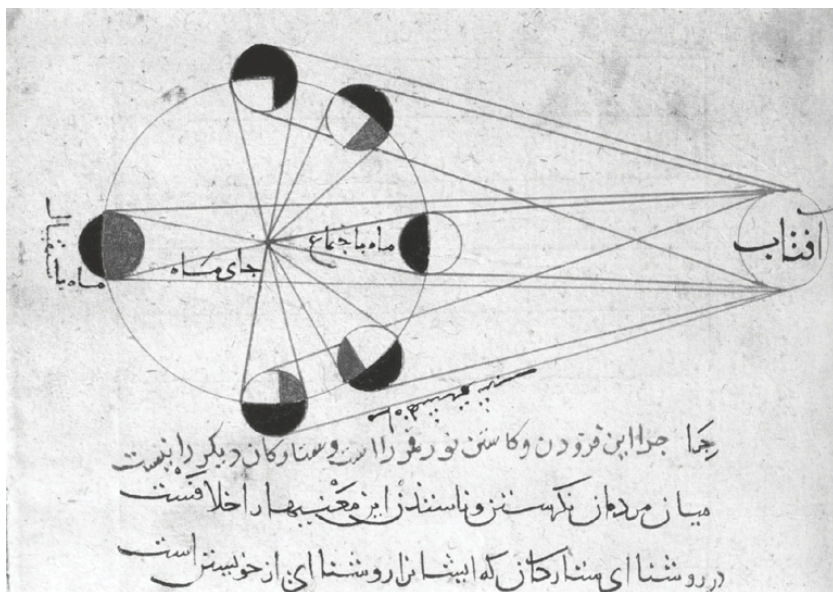 افتاب
ماه باجتماع
جای ماه
ماه باستقبال
جرا این فزودن و کاستن نور قمر را است و ستارکان دیکر را نیست
میان مردمان نکرستن و این معنیها را خلافست
در روشنا ای ستارکان که ایشانرا روشنا ای از خویشتن است